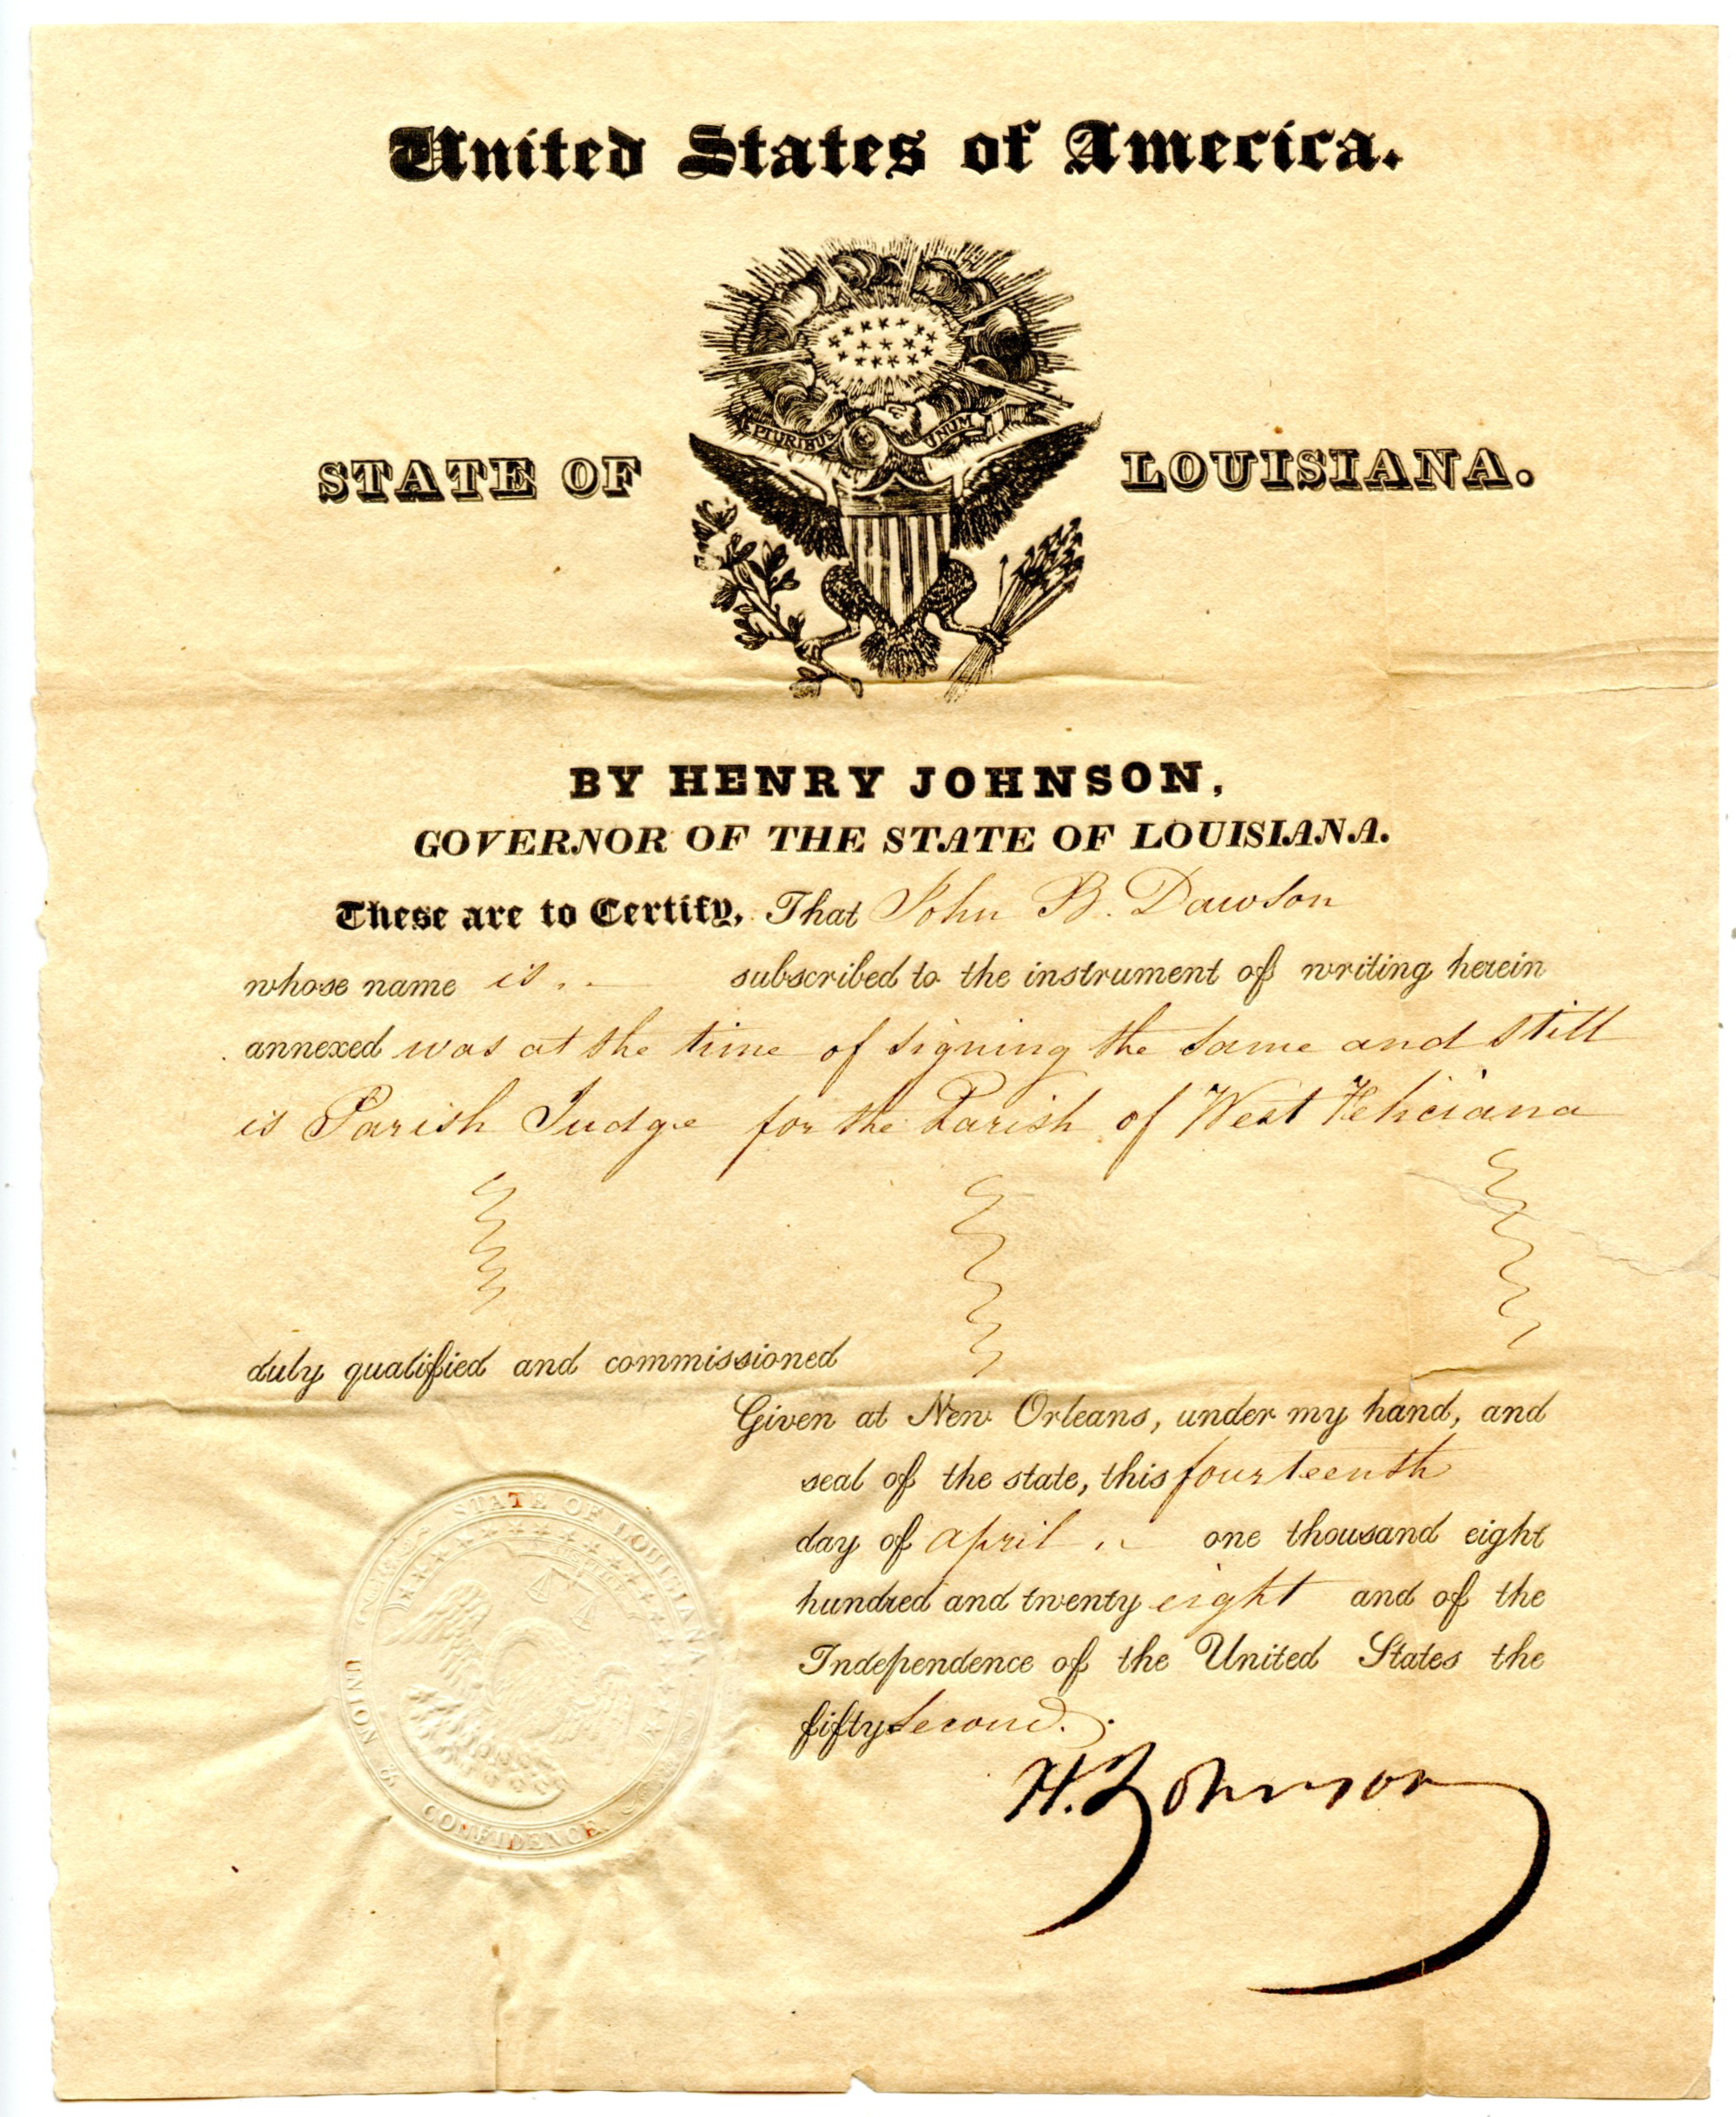 United States of America.
E PLURIBUS UNUM
STATE OF LOUISIANA.
BY HENRY JOHNSON,
GOVERNOR OF THE STATE OF LOUISIANA.
These are to Certify, That John B. Dawson
whose name is subscribed to the instrument of writing herein
annexed was at the time of signing the same and still
is Parish Judge for the Parish of West Feliciana
duly qualified and commissioned
Given at New Orleans, under my hand, and
seal of the state, this fourteenth
day of april one thousand eight
hundred and twenty eight and of the
Independence of the United States the
fifty second.
H. Johnson
STATE OF LOUISIANA
UNION &
CONFIDENCE